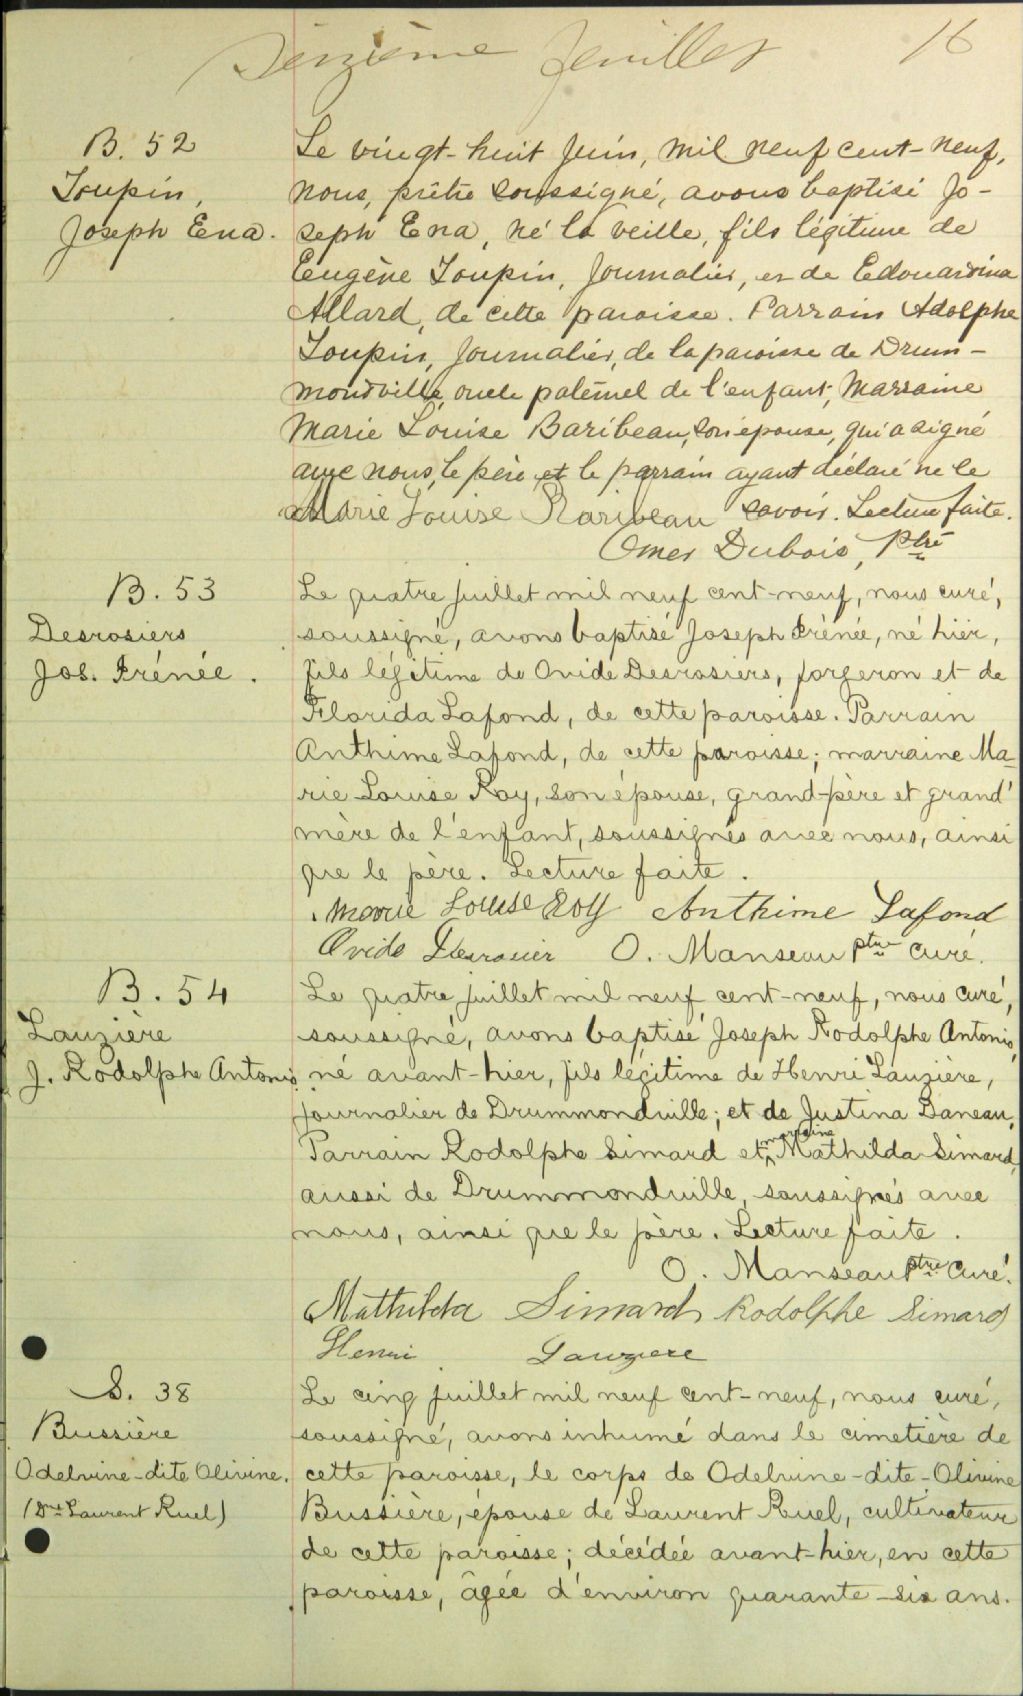 Seizième feuillet 16
B. 52
Toupin,
Joseph Ena.
Le vingt-huit juin, mil neuf cent-neuf,
nous, prêtre soussigné, avons baptisé Jo-
seph Ena, né la veille, fils légitime de
Eugène Toupin, journalier, et de Edouardina
Allard, de cette paroisse. Parrain Adolphe
Toupin, journalier, de la paroisse de Drum-
mondville, oncle paternel de l'enfant, Marraine
Marie Louise Baribeau, son épouse, qui a signé
avec nous, le père et le parrain ayant déclaré ne le
savoir. Lecture faite.
Marie Louise Baribeau
Omer Dubois, Ptre
B. 53
Desrosiers
Jos. Irénée.
Le quatre juillet mil neuf cent-neuf, nous curé,
soussigné, avons baptisé Joseph Irénée, né hier,
fils légitime de Ovide Desrosiers, forgeron et de
Florida Lafond, de cette paroisse. Parrain
Anthime Lafond, de cette paroisse; marraine Ma-
rie Louise Roy, son épouse, grand-père et grand'
mère de l'enfant, soussignés avec nous, ainsi
que le père. Lecture faite.
Marie Louise Roy Anthime Lafond
Ovide Desrosier O. Manseau ptre curé.
B. 54
Lauzière
J. Rodolphe Antonio
Le quatre juillet mil neuf cent-neuf, nous curé,
soussigné, avons baptisé Joseph Rodolphe Antonio,
né avant-hier, fils légitime de Henri Lauzière,
journalier de Drummondville; et de Justina Daneau,
Parrain Rodolphe Simard et marraine Mathilda Simard,
aussi de Drummondville, soussignés avec
nous, ainsi que le père. Lecture faite.
O. Manseau Ptre curé.
Mathilda Simard Rodolphe Simard
Henri Lauziere
S. 38
Bussière
Odelvine-dite Olivine.
(Dme Laurent Ruel)
Le cinq juillet mil neuf cent-neuf, nous curé,
soussigné, avons inhumé dans le cimetière de
cette paroisse, le corps de Odelvine-dite-Olivine
Bussière, épouse de Laurent Ruel, cultivateur
de cette paroisse; décédée avant-hier, en cette
paroisse, âgée d'environ quarante-six ans.